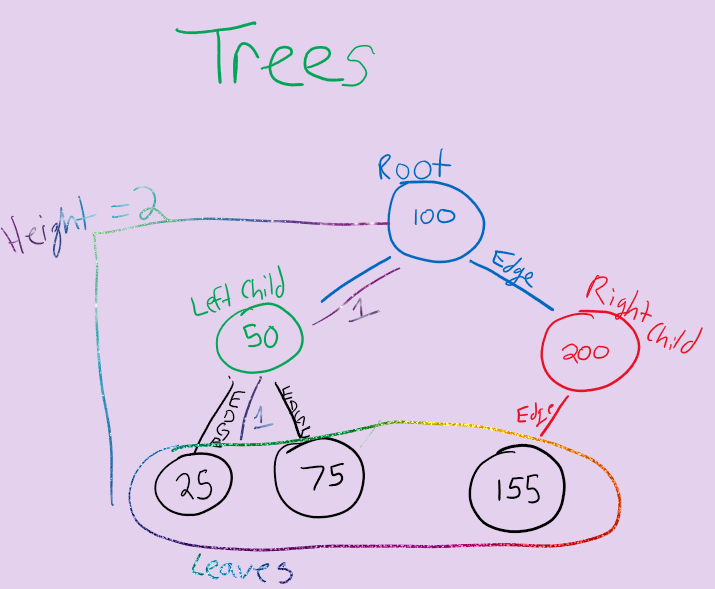 Trees
Root
100
Height = 2
Edge
1
Left Child
50
Right
Child
200
EDGE
1
EDGE
Edge
25
75
155
Leaves